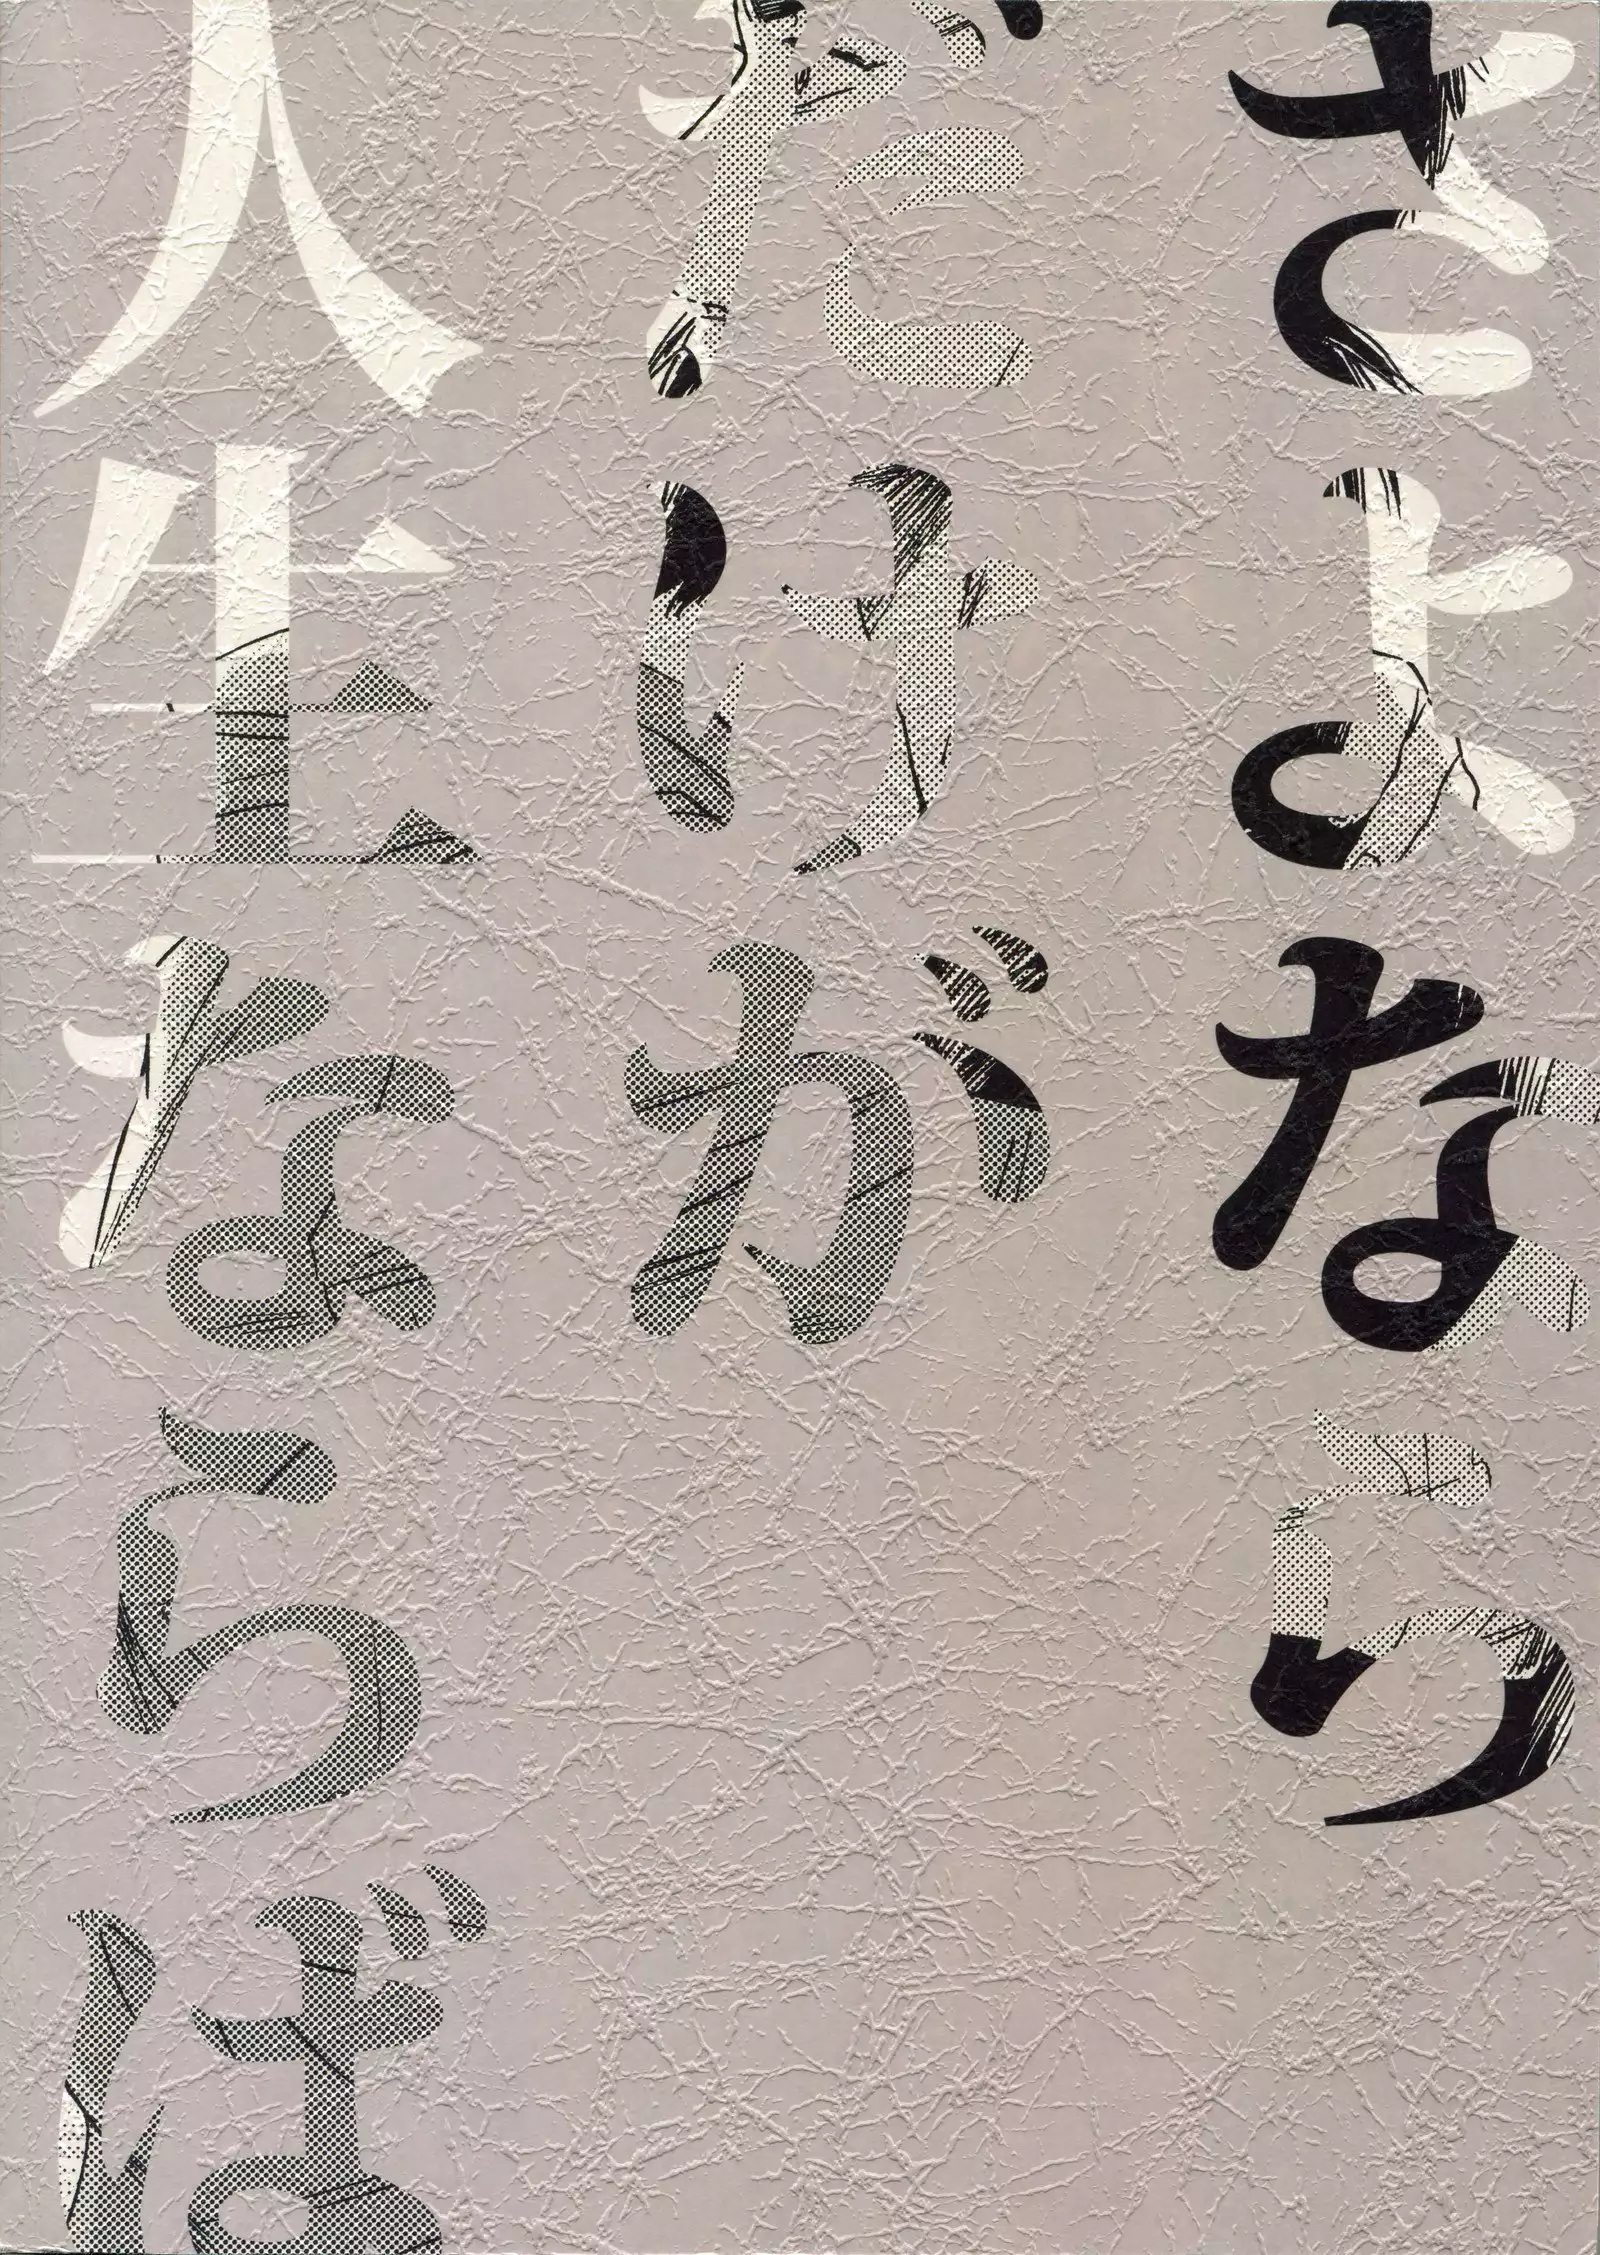 さよなら
だけが
人生ならば